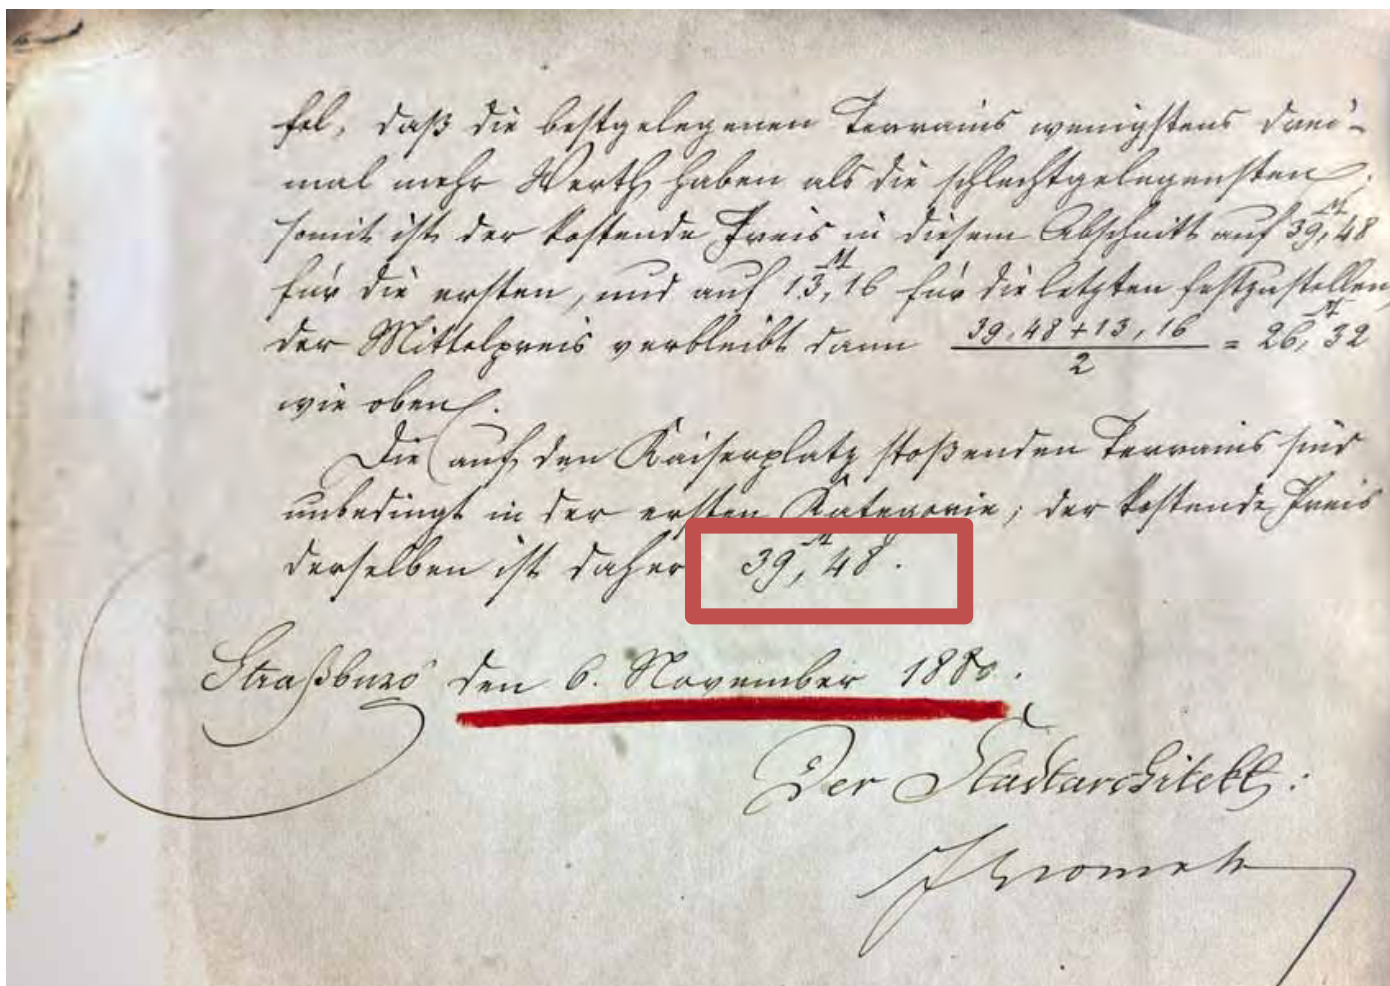 fel, daß die bestgelegenen Terrains wenigstens drei-
mal mehr Werth haben als die schlechtgelegensten;
somit ist der kostende Preis in diesem Abschnitt auf 39,M48
für die ersten, und auf 13,M16 für die letzten festzustellen,
der Mittelpreis verbleibt dann (39,48+13,16)/2 = 26,M32
wie oben.
Die auf den Kaiserplatz stoßenden Terrains sind
unbedingt in der ersten Kategorie; der kostende Preis
derselben ist daher 39,M48.
Straßburg den 6. November 1880.
Der Stadtarchitekt: